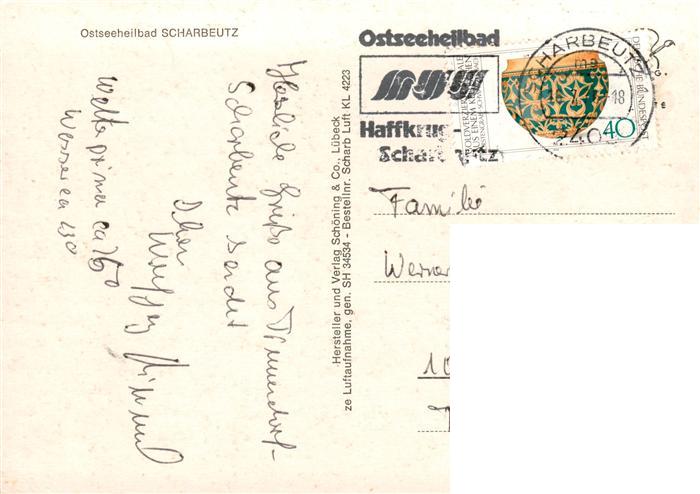 Ostseeheilbad SCHARBEUTZ
Herzliche Grüße aus
Scharbeutz sendet
Ihr
Wetter prima ca 25°
Wasser ca 23°
Hersteller und Verlag Schöning & Co., Lübeck
ze Luftaufnahme, gen. SH 34534 - Bestellnr. Scharb Luft KL 4223
Ostseeheilbad
Haffkrug-
Scharbeutz
SCHARBEUTZ
18
2409
DEUTSCHE BUNDESPOST
40
Familie
Werner
10